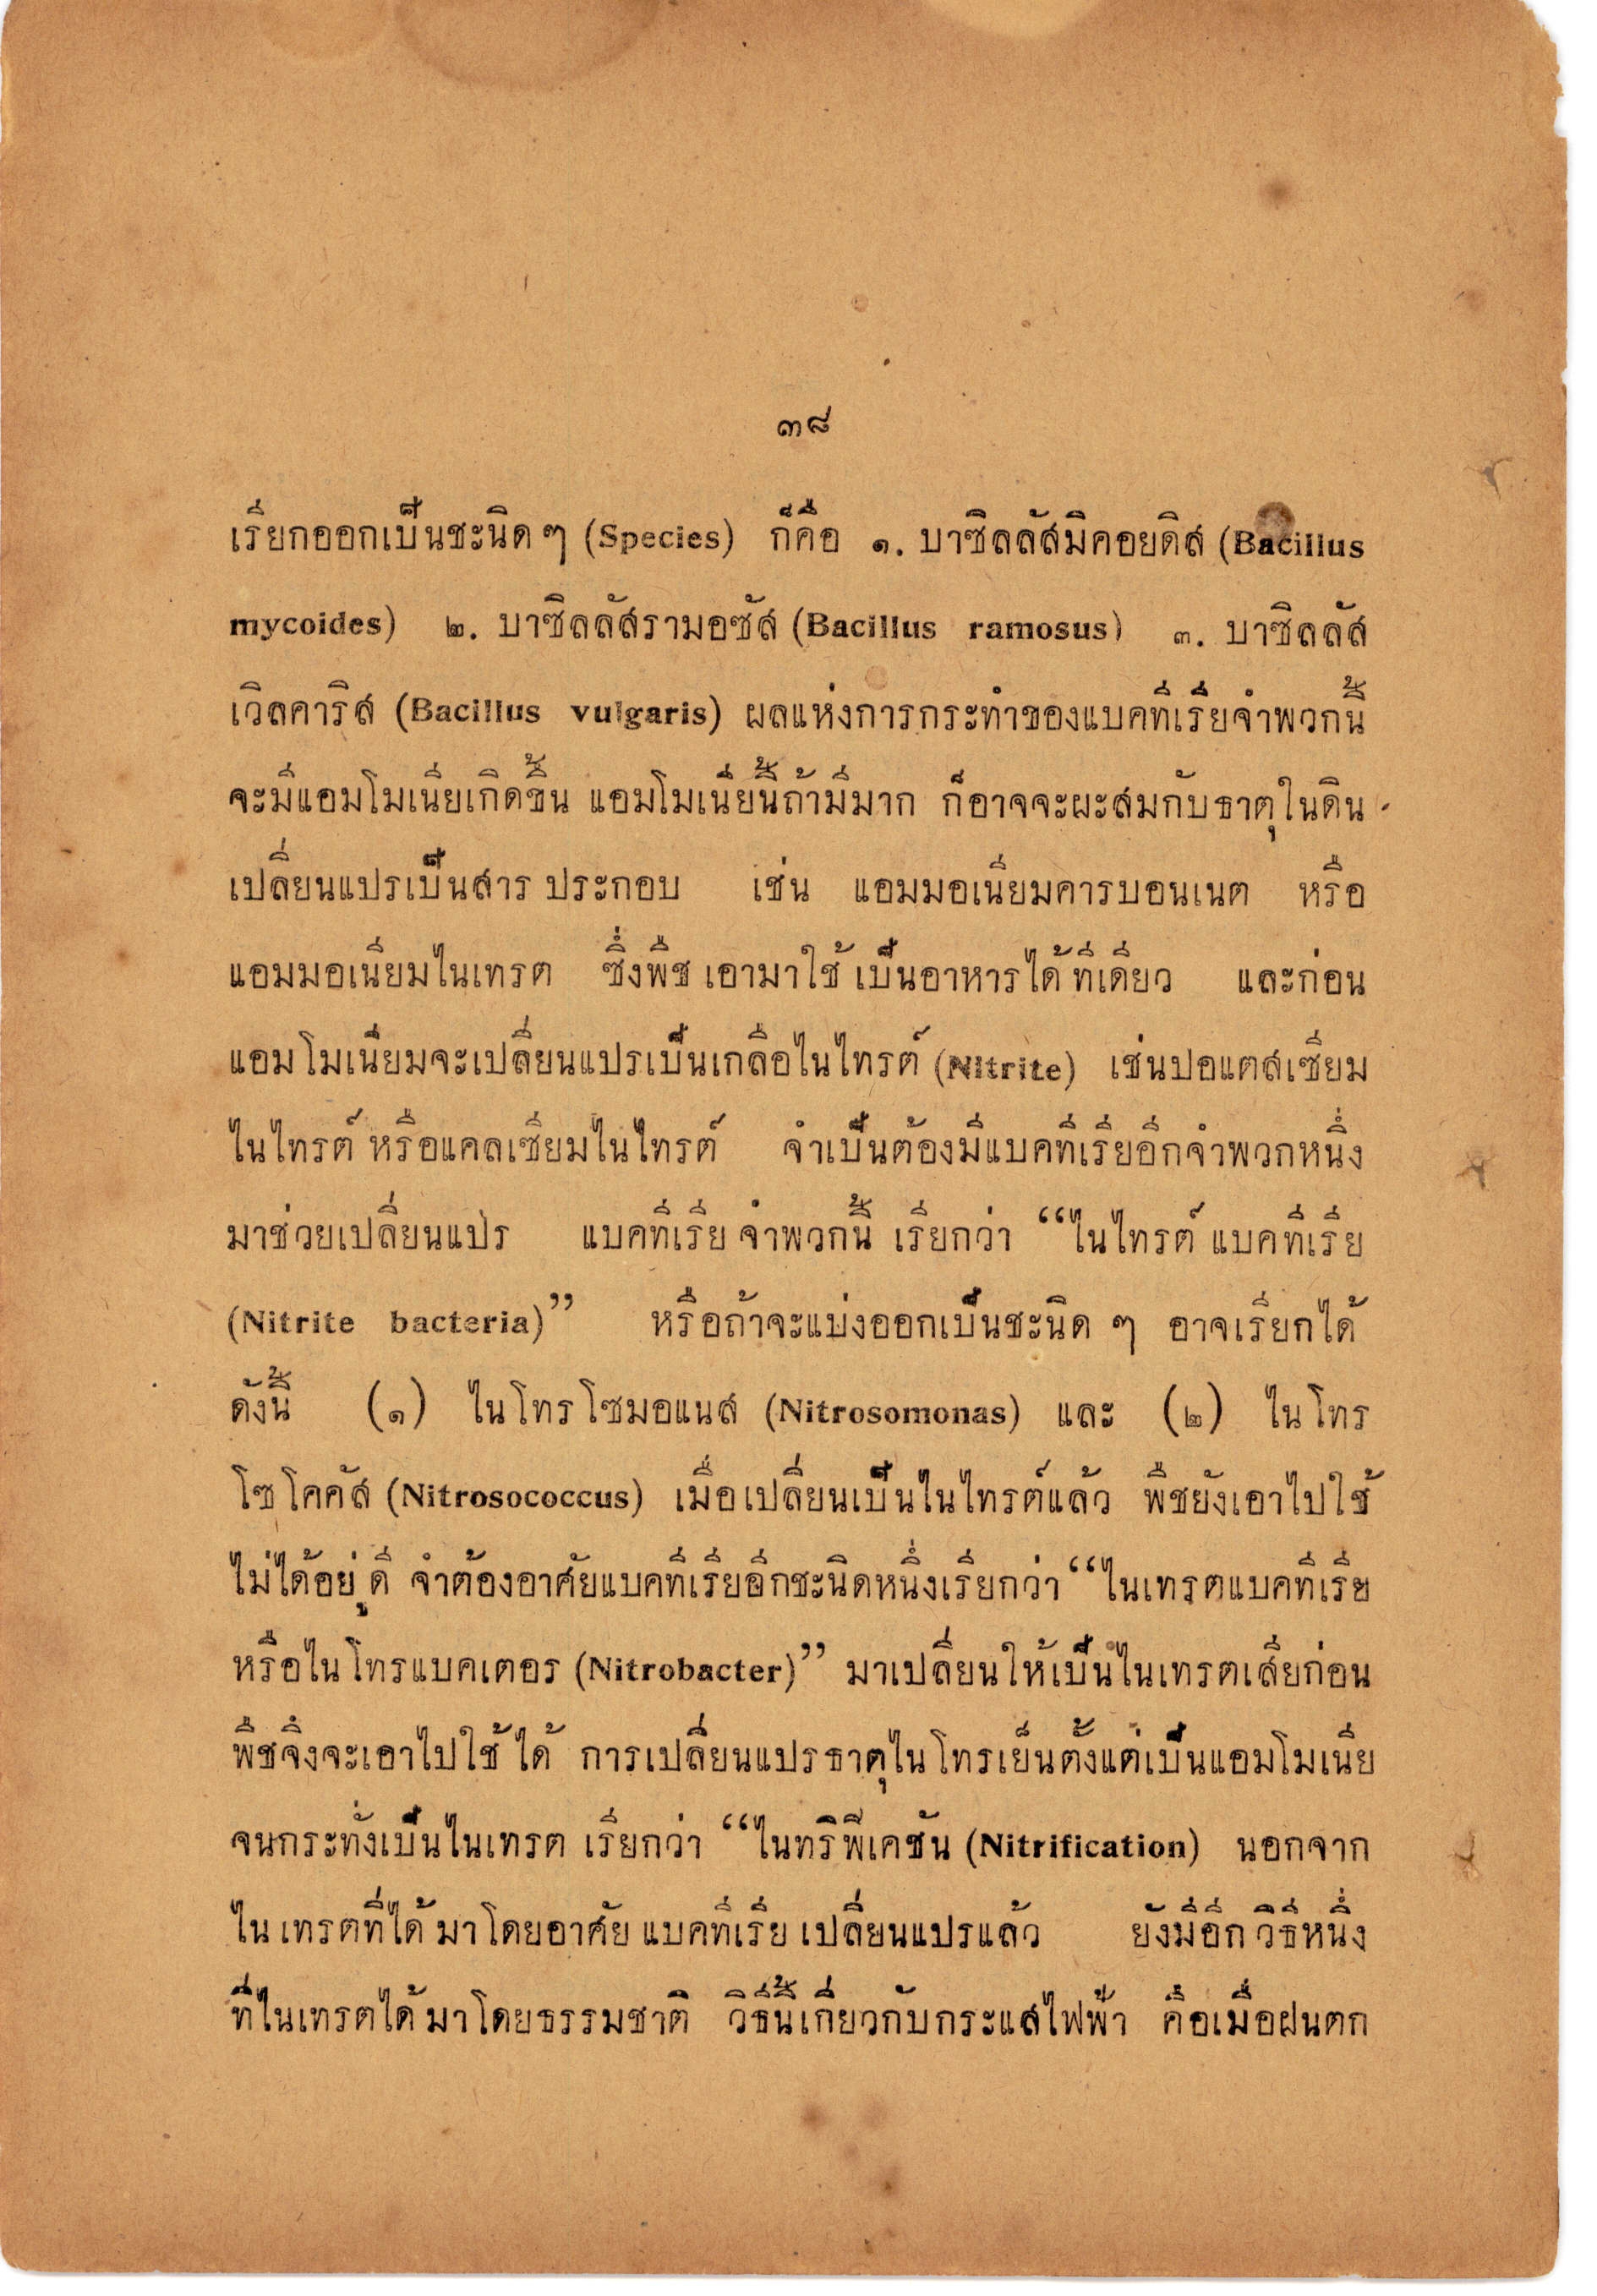 ๓๘
เรียกออกเป็นชะนิด ๆ (Species) ก็คือ ๑. บาซิลลัสมิคอยดิส (Bacillus
mycoides) ๒. บาซิลลัสรามอซัส (Bacillus ramosus) ๓. บาซิลลัส
เวิลคาริส (Bacillus vulgaris) ผลแห่งการกระทำของแบคทีเรียจำพวกนี้
จะมีแอมโมเนียเกิดขึ้น แอมโมเนียนี้ถ้ามีมาก ก็อาจจะผะสมกับธาตุในดิน
เปลี่ยนแปรเป็นสาร ประกอบ เช่น แอมมอเนียมคารบอนเนต หรือ
แอมมอเนียมไนเทรต ซึ่งพืช เอามาใช้ เป็นอาหารได้ ทีเดียว และก่อน
แอมโมเนียมจะเปลี่ยนแปรเป็นเกลือไนไทรต์ (Nitrite) เช่นปอแตสเซียม
ไนไทรต์ หรือแคลเซียมไนไทรต์ จำเป็นต้องมีแบคทีเรียอีกจำพวกหนึ่ง
มาช่วยเปลี่ยนแปร แบคทีเรีย จำพวกนี้ เรียกว่า “ไนไทรต์ แบคทีเรีย
(Nitrite bacteria)” หรือถ้าจะแบ่งออกเป็นชะนิด ๆ อาจเรียกได้
ดังนี้ (๑) ไนโทรโซมอแนส (Nitrosomonas) และ (๒) ไนโทร
โซโคคัส (Nitrosococcus) เมื่อเปลี่ยนเป็นไนไทรต์แล้ว พืชยังเอาไปใช้
ไม่ได้อยู่ดี จำต้องอาศัยแบคทีเรียอีกชะนิดหนึ่งเรียกว่า “ไนเทรตแบคทีเรีย
หรือไนโทรแบคเตอร (Nitrobacter)” มาเปลี่ยนให้เป็นไนเทรตเสียก่อน
พืชจึงจะเอาไปใช้ ได้ การเปลี่ยนแปรธาตุไนโทรเย็นตั้งแต่เป็นแอมโมเนีย
จนกระทั่งเป็นไนเทรต เรียกว่า “ไนทริฟีเคชัน (Nitrification) นอกจาก
ไน เทรตที่ได้ มาโดยอาศัย แบคทีเรีย เปลี่ยนแปรแล้ว ยังมีอีก วิธีหนึ่ง
ที่ไนเทรตได้ มาโดยธรรมชาติ วิธีนี้เกี่ยวกับกระแสไฟฟ้า คือเมื่อฝนตก